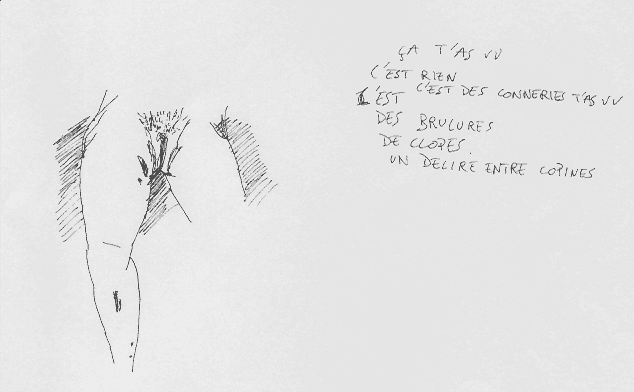 ÇA T'AS VU
C'EST RIEN
EST C'EST DES CONNERIES T'AS VU
DES BRULURES
DE CLOPES.
UN DELIRE ENTRE COPINES